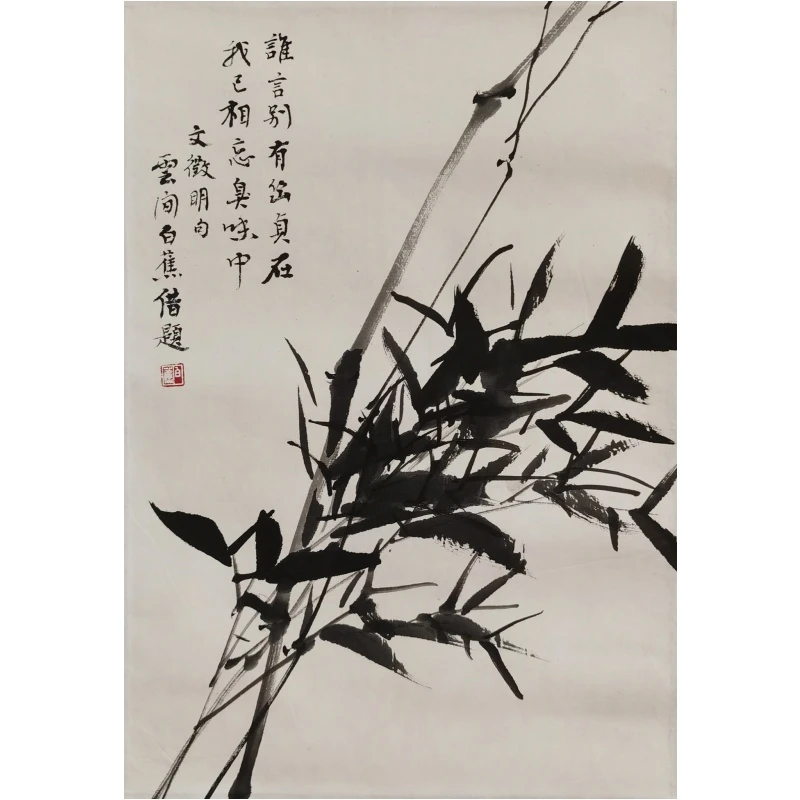 誰言別有幽貞在
我已相忘臭味中
文徵明句
雲間白蕉借題
白蕉